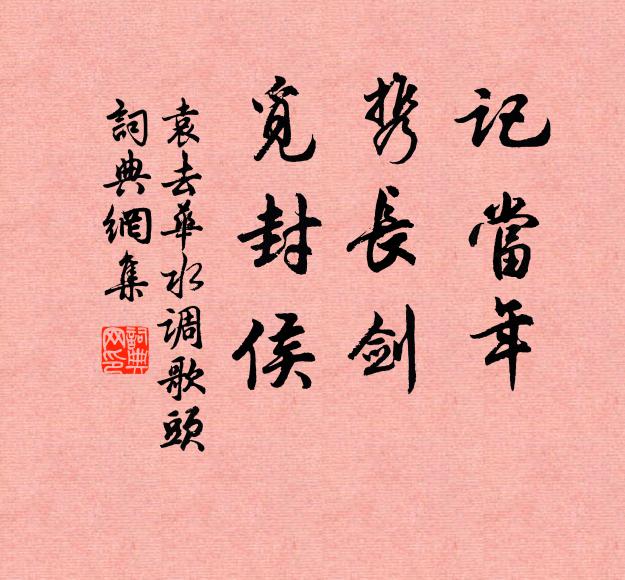 記當年
携長劍
覓封侯
袁去華水调歌頭
詞典網集
詞典网印